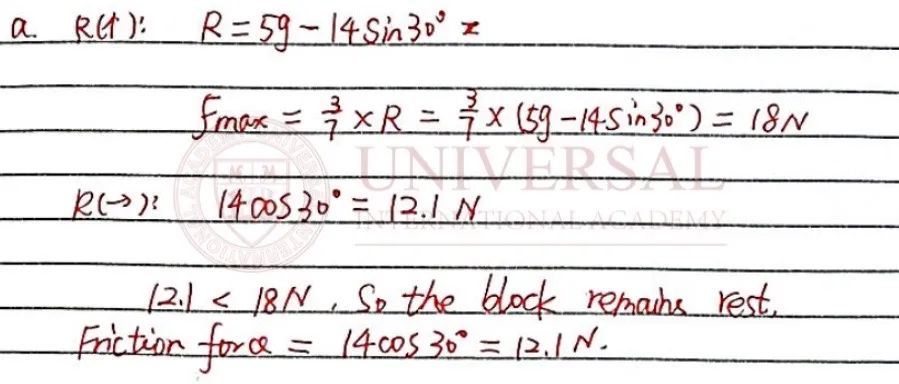 a. R(↑): R = 5g - 14 Sin30° =
Fmax = 3/7 × R = 3/7 × (5g - 14Sin30°) = 18N
UNIVERSAL
R(→): 14cos30° = 12.1 N
INTERNATIONAL ACADEMY
12.1 < 18N, So the block remains rest.
Friction force = 14cos30° = 12.1N.